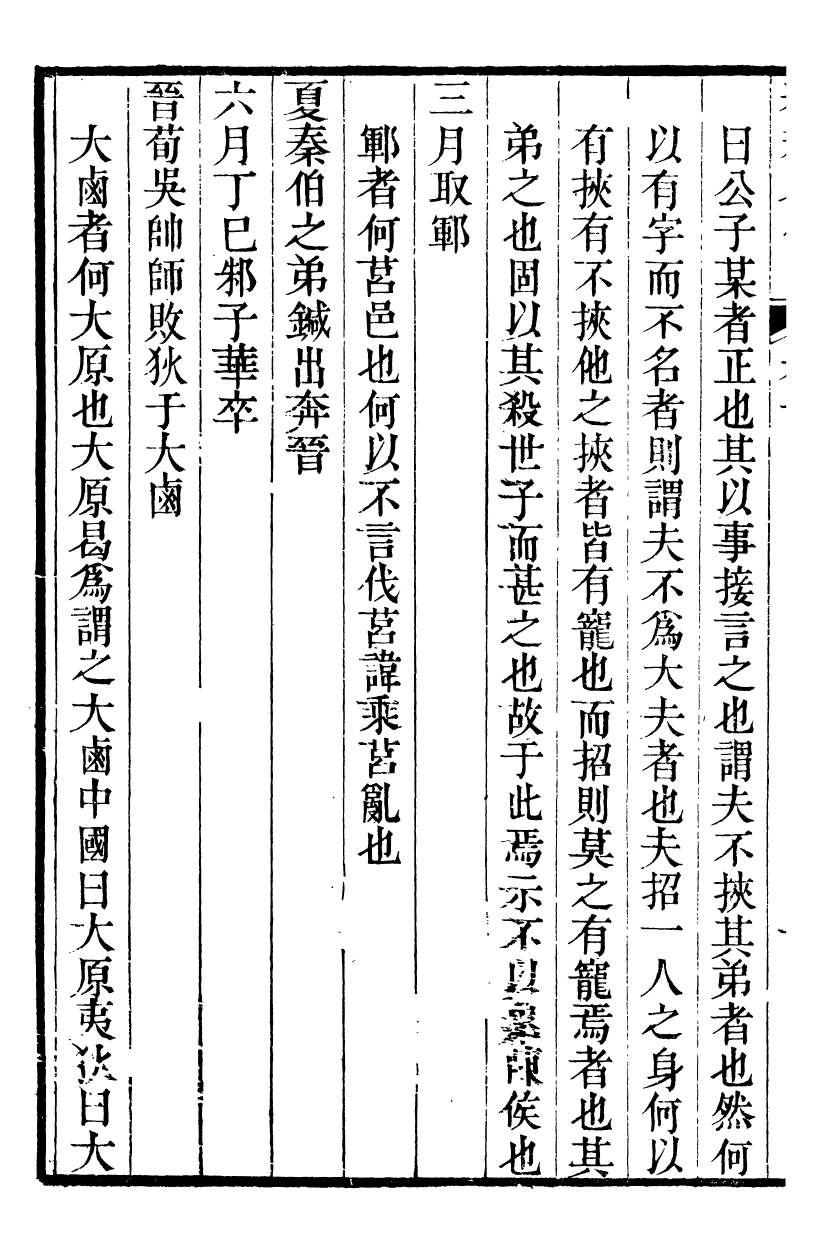 曰公子某者正也其以事接言之也謂夫不挾其弟者也然何
以有字而不名者則謂夫不爲大夫者也夫招一人之身何以
有挾有不挾他之挾者皆有寵也而招則莫之有寵焉者也其
弟之也固以其殺世子而甚之也故于此焉示不以累陳侯也
三月取鄆
鄆者何莒邑也何以不言伐莒諱乘莒亂也
夏秦伯之弟鍼出奔晉
六月丁巳邾子華卒
晉荀吳帥師敗狄于大鹵
大鹵者何大原也大原曷爲謂之大鹵中國曰大原夷狄曰大